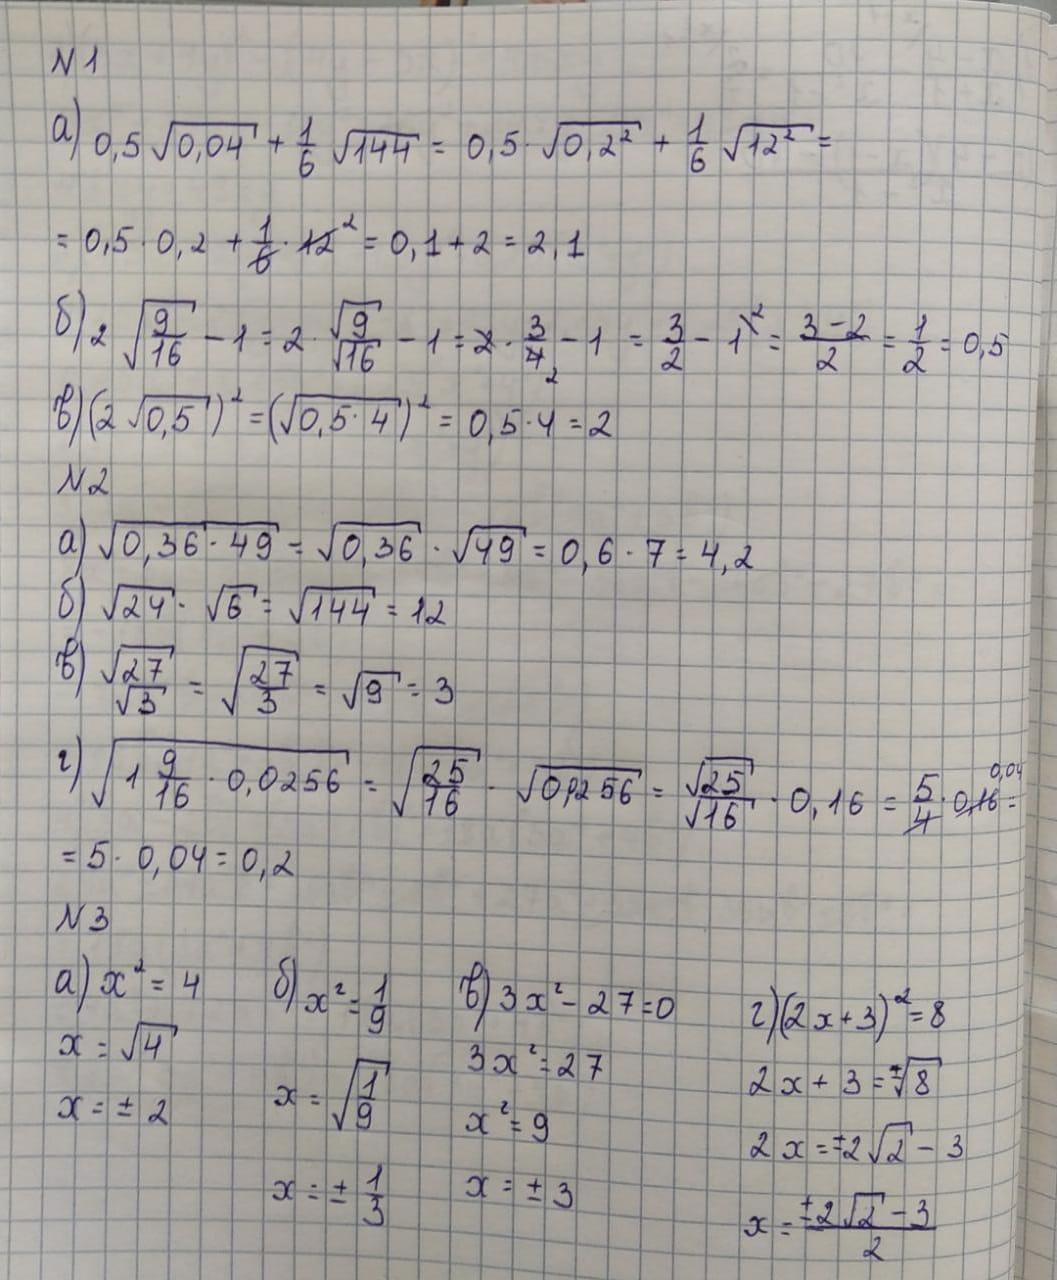 N1
а) 0,5 √0,04 + 1/6 √144 = 0,5 · √0,2² + 1/6 √12² =
= 0,5 · 0,2 + 1/6 · 12 ² = 0,1 + 2 = 2,1
б) 2 √(9/16) - 1 = 2 · √9/√16 - 1 = 2 · 3/4 ₂ - 1 = 3/2 - 1 ² = (3-2)/2 = 1/2 = 0,5
в) (2 √0,5)² = (√(0,5 · 4))² = 0,5 · 4 = 2
N2
а) √(0,36 · 49) = √0,36 · √49 = 0,6 · 7 = 4,2
б) √24 · √6 = √144 = 12
в) √27/√3 = √(27/3) = √9 = 3
г) √(1 9/16 · 0,0256) = √(25/16) · √0,0256 = √25/√16 · 0,16 = 5/4 · 0,16 0,04 =
= 5 · 0,04 = 0,2
N3
а) x² = 4
x = √4
x = ± 2
б) x² = 1/9
x = √(1/9)
x = ± 1/3
в) 3x² - 27 = 0
3x² = 27
x² = 9
x = ± 3
г) (2x + 3)² = 8
2x + 3 = ±√8
2x = ±2√2 - 3
x = (±2√2 - 3)/2